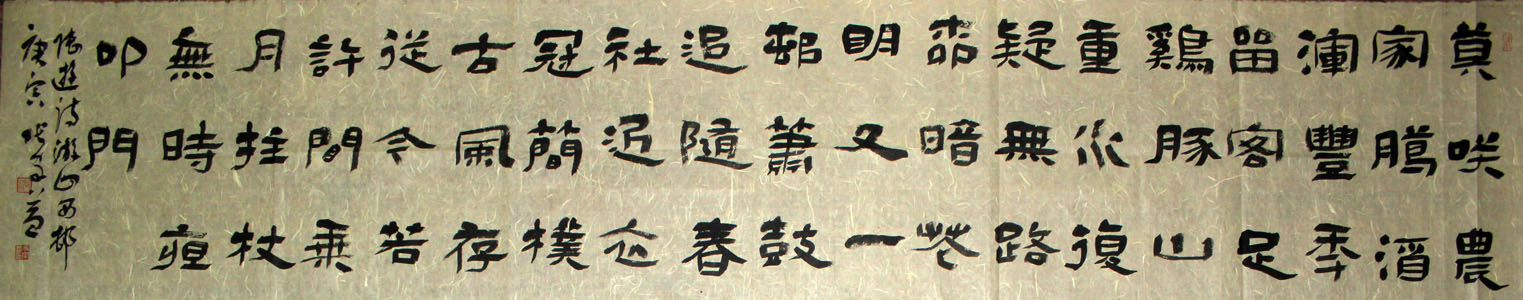 莫咲農
家臈酒
渾豐年
留客足
鷄豚山
重水復
疑無路
柳暗花
明又一
邨蕭鼓
追隨春
社近衣
冠簡樸
古風存
從今若
許間乘
月拄杖
無時夜
叩門
陸遊詩游山西邨
庚寅